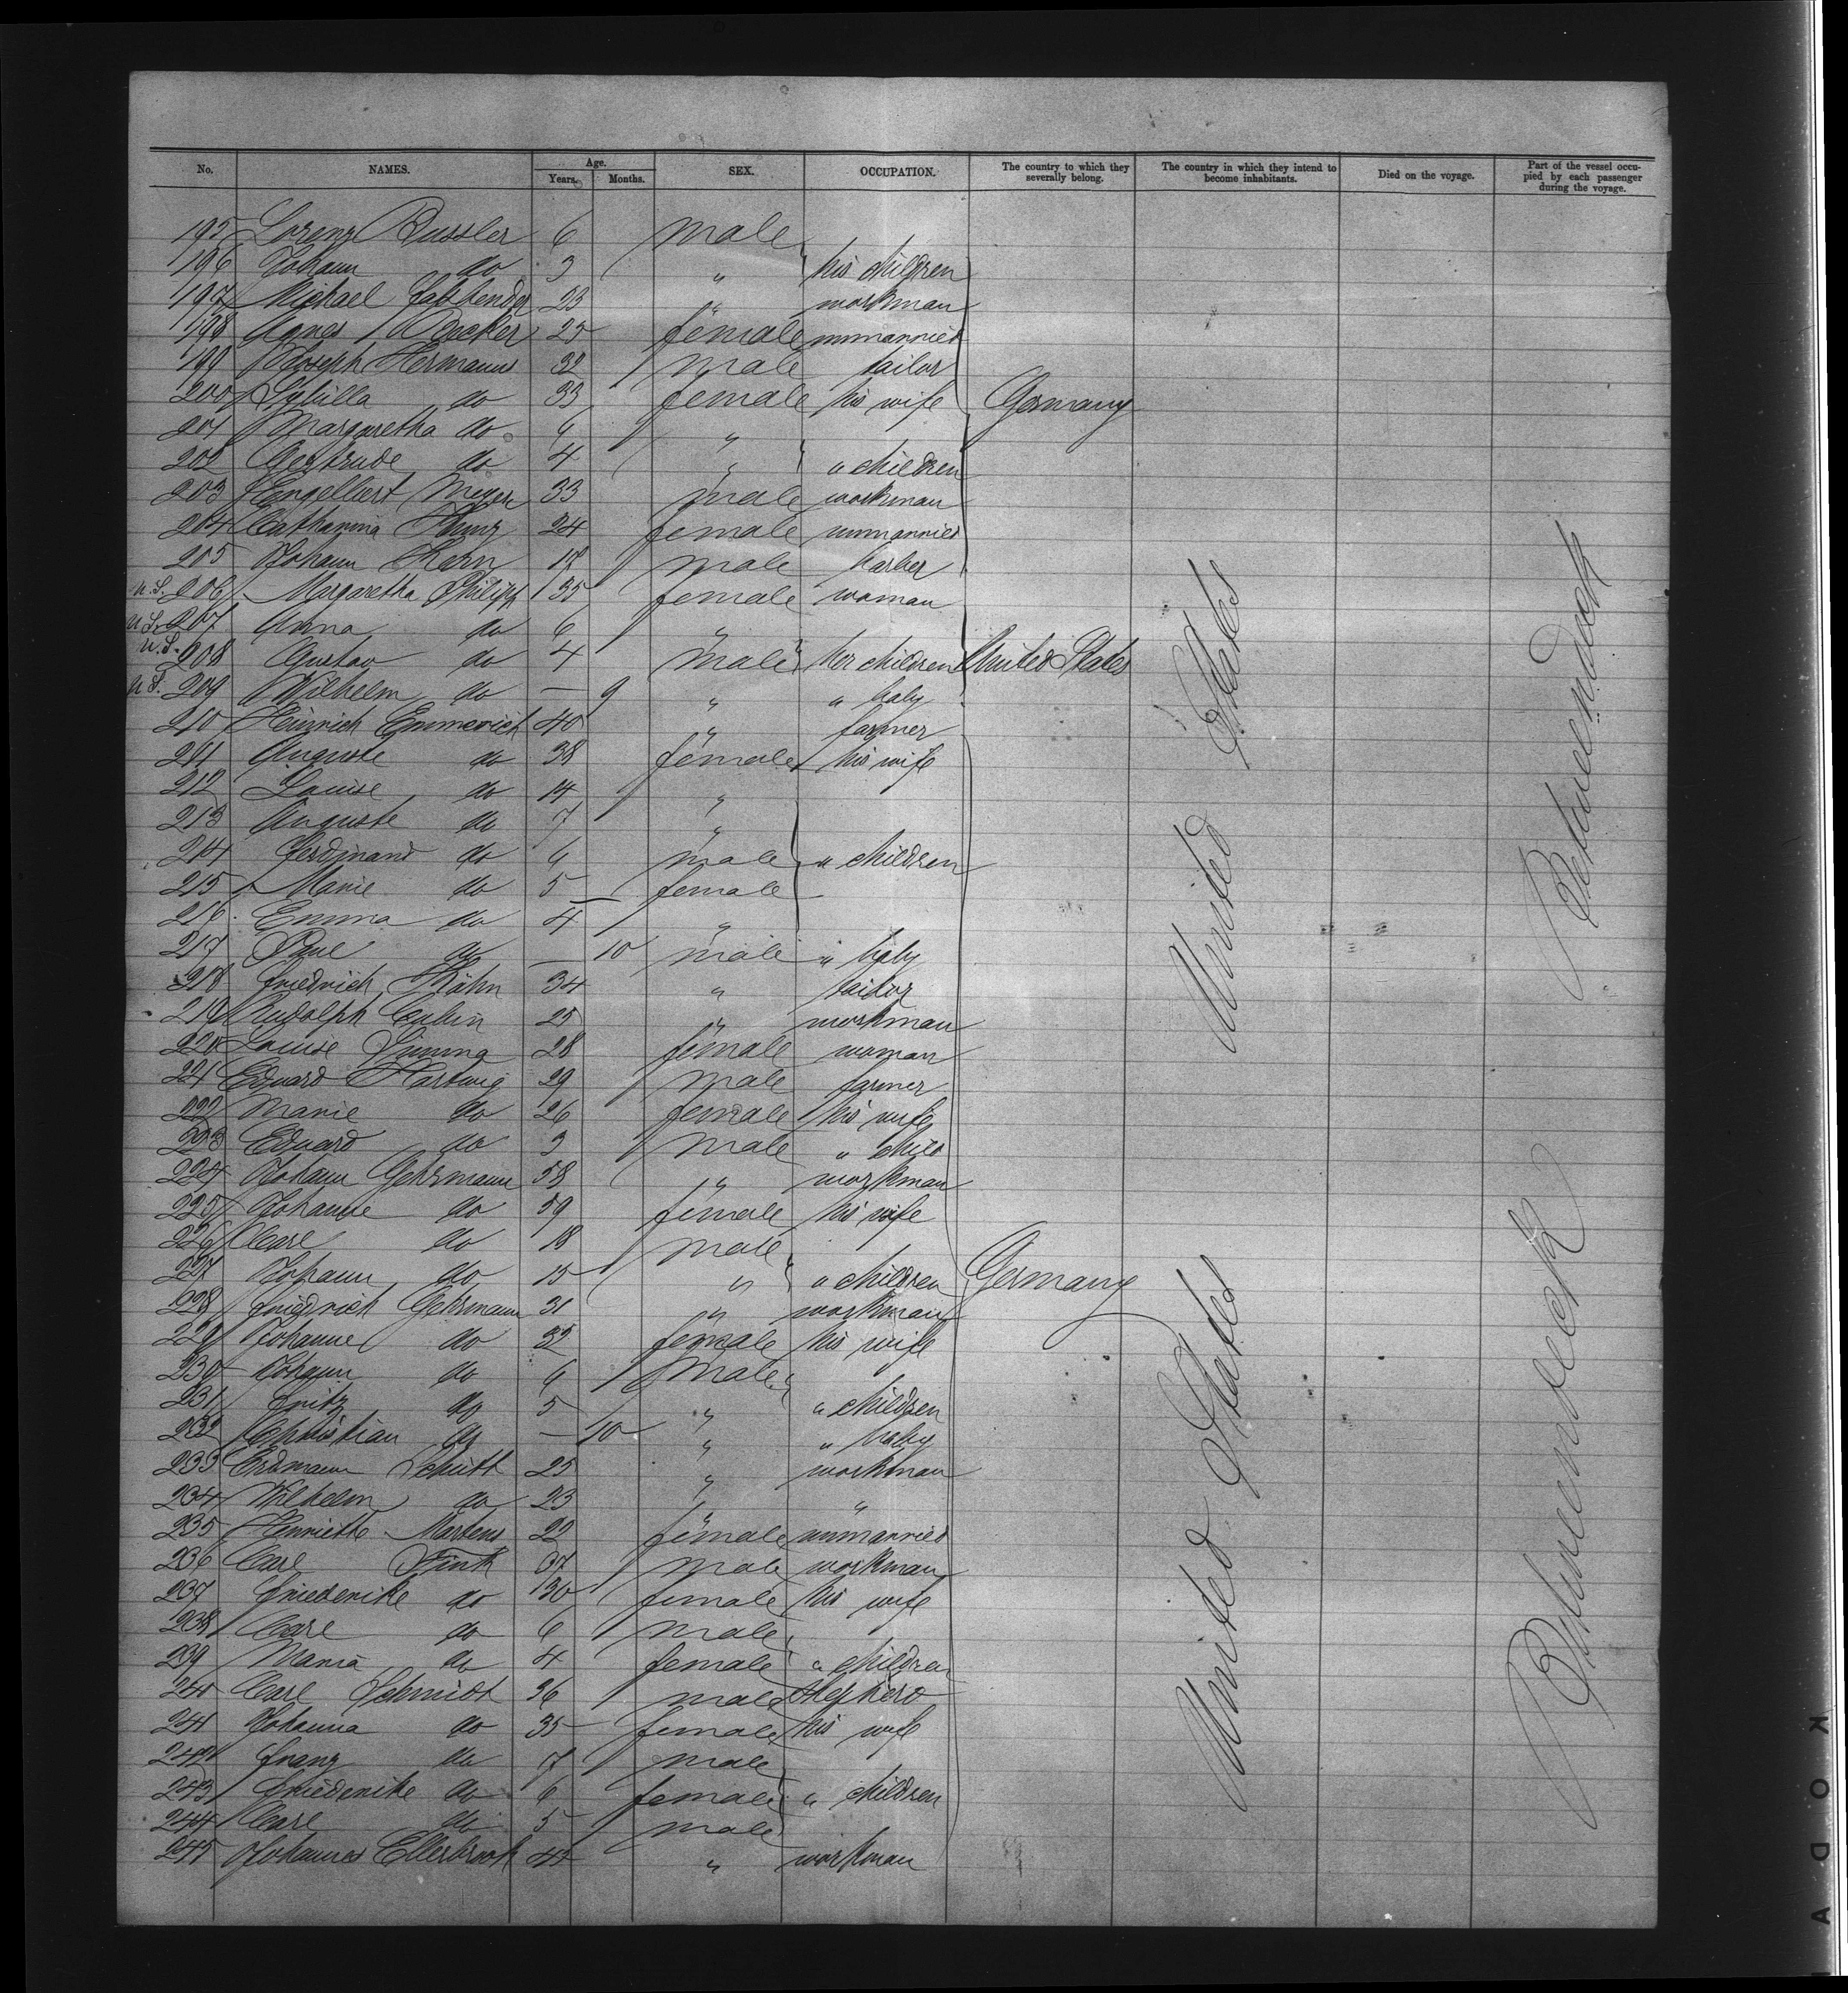 No. NAMES. Age. Years. Months. SEX. OCCUPATION. The country to which they severally belong. The country in which they intend to become inhabitants. Died on the voyage. Part of the vessel occupied by each passenger during the voyage.
195 Lorenz Bussler 6 male
196 Johann do 3 " his children
197 Michael 23 " workman
198 Agnes Becker 25 female unmarried
199 Joseph Hermann 32 male tailor
200 Sybilla do 33 female his wife Germany
201 Margaretha do 6 "
202 Gertrude do 4 " " children
203 Engelbert Meyer 33 male workman
204 Catharina 24 female unmarried
205 Johann Kern male barber
U.S. 206 Margaretha Philipp 35 female woman
U.S. 207 Anna do 6 "
U.S. 208 Gustav do 4 male her children United States
U.S. 209 Wilhelm do — 9 " " baby
210 Heinrich Emmerich 40 " farmer
211 Auguste do 38 female his wife
212 Louise do 14 "
213 Auguste do 7 "
214 Ferdinand do 6 male " children
215 Marie do 5 female
216 Emma do 4 "
217 Paul do — 10 male " baby
218 Friedrich 34 " tailor
219 Rudolph 25 " workman
220 Louise 28 female woman
221 Eduard Hartwig 29 male farmer
222 Marie do 26 female his wife
223 Eduard do 3 male " child
224 Johann Gehrmann 58 " workman
225 Johanne do 59 female his wife
226 Carl do 18 male
227 Johann do 15 " " children Germany
228 Friedrich Gehrmann 31 " workman
229 Johanne do 32 female his wife
230 Johann do 6 male
231 Fritz do 5 " " children
232 Christian do — 10 " " baby
233 Erdmann Schütt 25 " workman
234 Wilhelm do 23 " "
235 Henriette Martens 22 female unmarried
236 Carl Fink 37 male workman
237 Friederike do 30 female his wife
238 Carl do 6 male
239 Maria do 4 female " children
240 Carl Schmidt 36 male shepherd
241 Johanna do 35 female his wife
242 Franz do 7 male
243 Friederike do 6 female " children
244 Carl do 5 male
245 Johannes Ellerbrook " workman
United States
United States
Betweendeck
Betweendeck
KODA